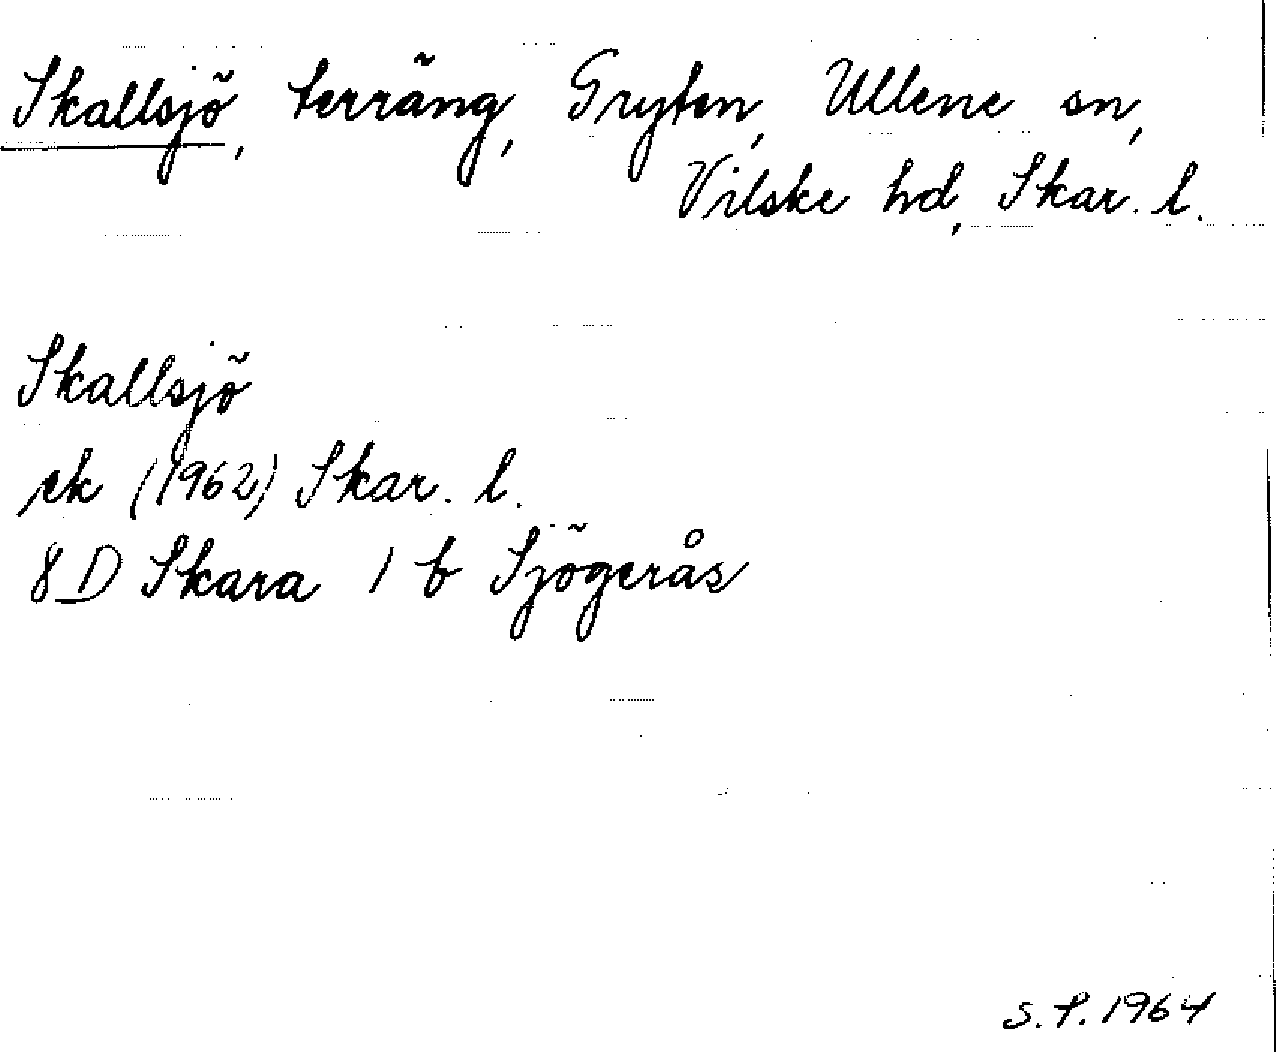 Skallsjö, terräng, Gryten, Ullene sn,
Vilske hd, Skar. l.
Skallsjö
ek (1962) Skar. l.
8 D Skara 1 b Sjögerås
S. P. 1964